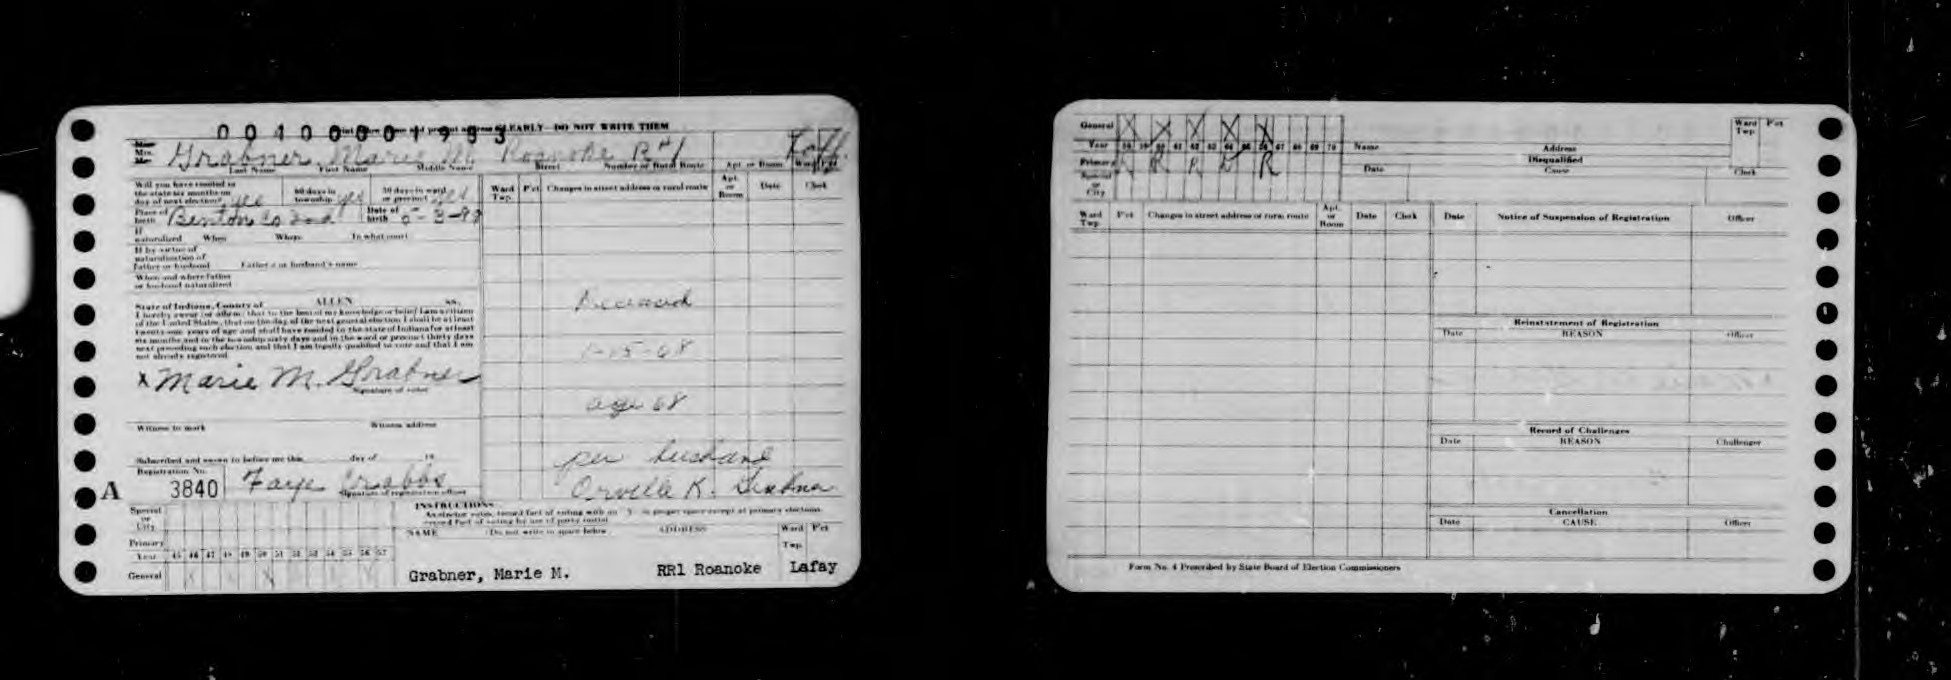 0040001983
CLEARLY—DO NOT WRITE THEM
Mrs. Grabner, Marie M. Roanoke R#1
Last Name First Name Middle Name Street Number or Rural Route Apt. or Room Ward Pct.
Will you have resided in
the state six months on
day of next election? yes
60 days in
township yes
30 days in ward
or precinct yes
Place of
birth Benton Co Ind
Date of
birth
If
naturalized When Where In what court
If by virtue of
naturalization of
Father or husband Father's or husband's name
When and where Father
or husband naturalized
State of Indiana, County of ALLEN ss.
I hereby swear (or affirm) that to the best of my knowledge or belief I am a citizen
of the United States, that on the day of the next general election I shall be at least
twenty-one years of age and shall have resided in the state of Indiana for at least
six months and in the township sixty days and in the ward or precinct thirty days
next preceding such election and that I am legally qualified to vote and that I am
not already registered.
X Marie M. Grabner
Signature of voter
Witness to mark Witness address
Subscribed and sworn to before me this day of 19
Registration No.
A 3840 Faye Crabbs
Signature of registration officer
Ward
Twp.
P'ct
Changes in street address or rural route
Apt.
or
Room
Date
Clerk
Deceased
age 68
per husband
Orville K. Grabner
INSTRUCTIONS
An elector votes, record fact of voting with an X in proper space except at primary elections
record fact of voting by use of party initial
Special
or
City
Primary
Year 45 46 47 48 49 50 51 52 53 54 55 56 57
General
NAME (Do not write in space below) ADDRESS Ward Twp. P'ct
Grabner, Marie M. RR1 Roanoke Lafay
General X X X X X
Year 58 59 60 61 62 63 64 65 66 67 68 69 70
Primary R R R R
Special
or
City
Name Address
Ward
Twp.
P'ct
Disqualified
Date Cause Clerk
Ward
Twp.
P'ct
Changes in street address or rural route
Apt.
or
Room
Date
Clerk
Date Notice of Suspension of Registration Officer
Reinstatement of Registration
Date REASON Officer
Record of Challenges
Date REASON Challenger
Cancellation
Date CAUSE Officer
Form No. 4 Prescribed by State Board of Election Commissioners